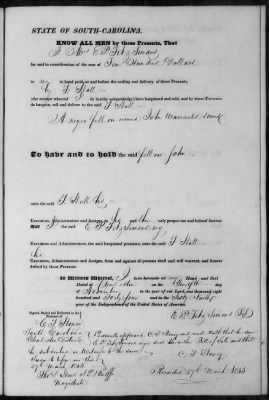 STATE OF SOUTH-CAROLINA.
KNOW ALL MEN by these Presents, That
I Mrs E P Fitz Simons
for and in consideration of the sum of Two Hundred Dollars
to me in hand paid at and before the sealing and delivery of these Presents,
by F Hall
(the receipt whereof I do hereby acknowledge) have bargained and sold, and by these Presents,
do bargain, sell and deliver to the said F Hall
A negro fellow named John
To have and to hold the said fellow John
unto the said F Hall his
Executors, Administrators and Assigns, to his and their only proper use and behoof forever
And I the said E P Fitz Simons my
Executors and Administrators, the said bargained premises, unto the said F Hall
his
Executors, Administrators and Assigns, from and against all persons shall and will warrant, and forever
defend by these Presents.
In Witness Whereof, I have hereunto set my Hand and Seal
Dated at Charleston on the Twelfth day of
February in the year of our Lord, one thousand eight
hundred and Forty four and in the Sixty
year of the Independence of the United States of America.
Signed, Sealed and Delivered in the
Presence of
E P Fitz Simons
C F
South Carolina
Charleston District
Personally appeared C F and made oath that he saw
E P Fitz Simons sign and the within Bill of Sale and that
he subscribed as witness to the same
C F
27th March 1845
Magistrate
Recorded 27th March 1845